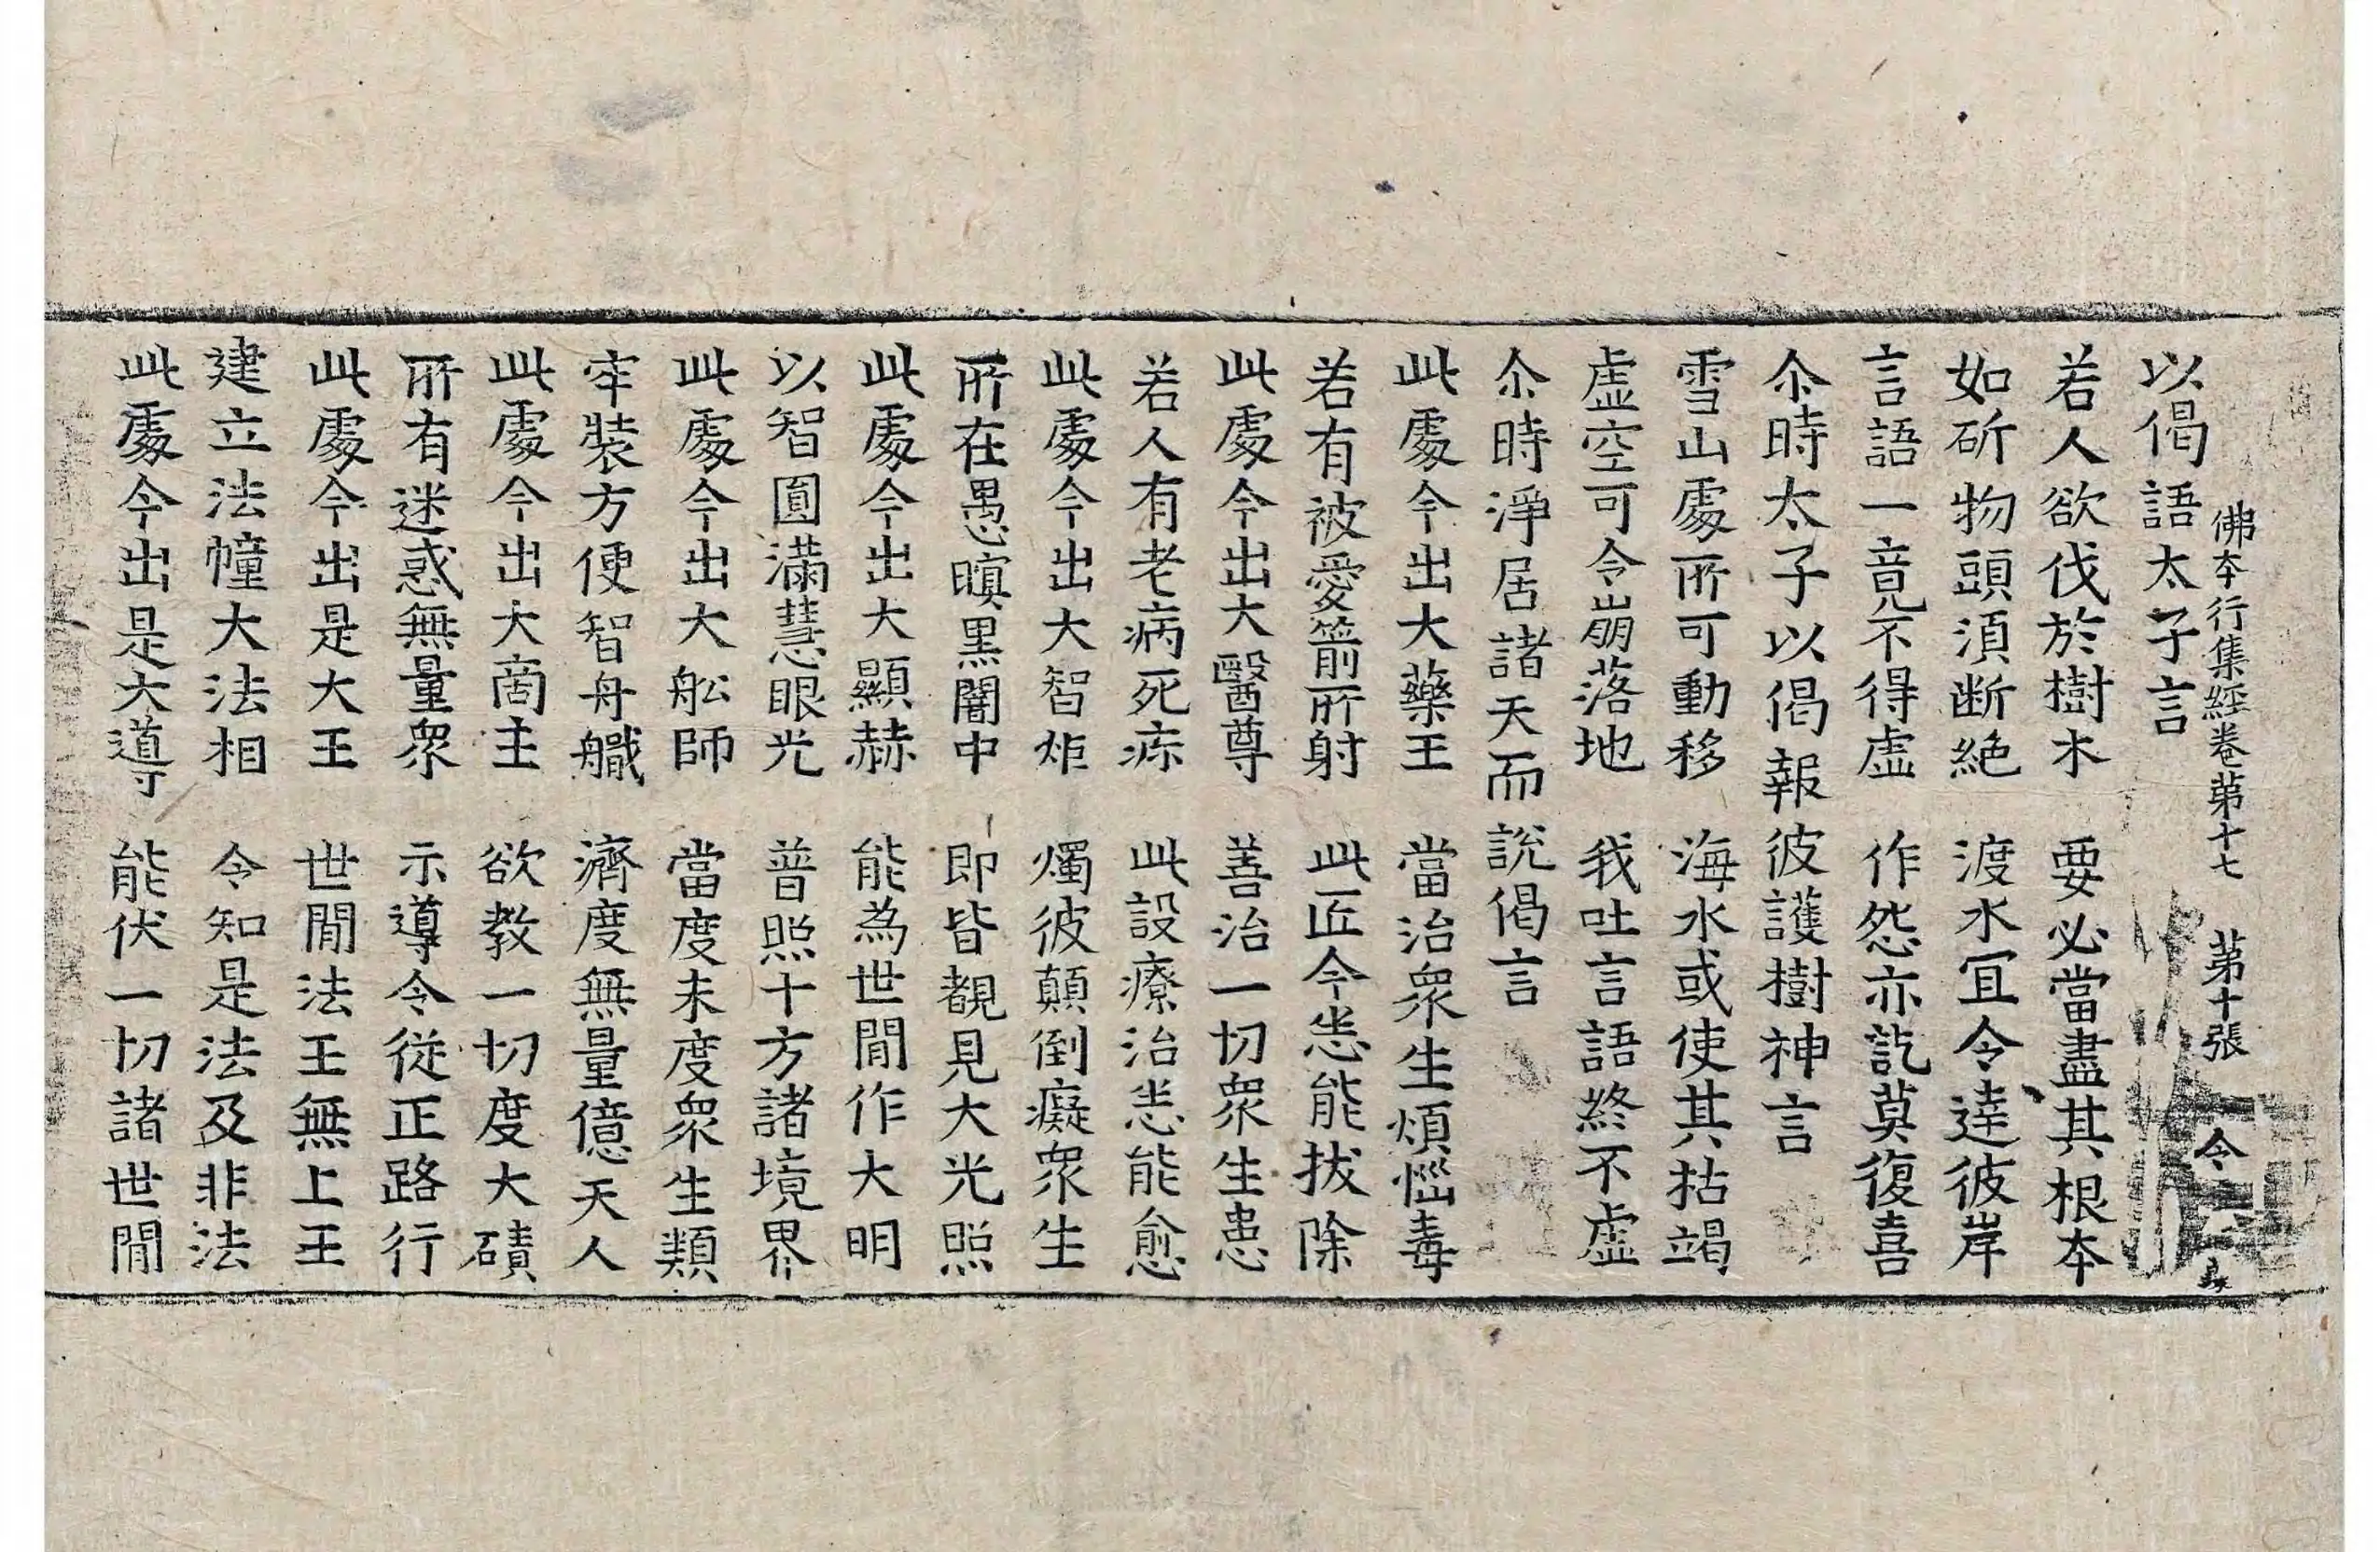 以偈語太子言
佛本行集經卷第十七 第十張 令
若人欲伐於樹木 要必當盡其根本
如斫物頭湏断絶 渡水冝令達彼岸
言語一竟不得虛 作怨亦訖莫復喜
尒時太子以偈報彼護樹神言
雪山處所可動移 海水或使其枯竭
虛空可令崩落地 我吐言語終不虛
尒時淨居諸天而說偈言
此處今出大藥王 當治衆生煩惱毒
若有被愛箭所射 此匠今恙能拔除
此處今出大醫尊 善治一切衆生患
若人有老病死疾 此設療治恙能愈
此處今出大智炬 燭彼顛倒癡衆生
所在愚暝黒闇中 即皆覩見大光照
此處今出大顯赫 能為世間作大明
以智圎滿慧眼光 普照十方諸境界
此處今出大舩師 當度未度衆生類
牢裝方便智舟艥 濟度無量億天人
此處今出大商主 欲教一切度大磧
所有迷惑無量衆 示導令從正路行
此處今出是大王 世間法王無上王
建立法幢大法相 令知是法及非法
此處今出是大導 能伏一切諸世間